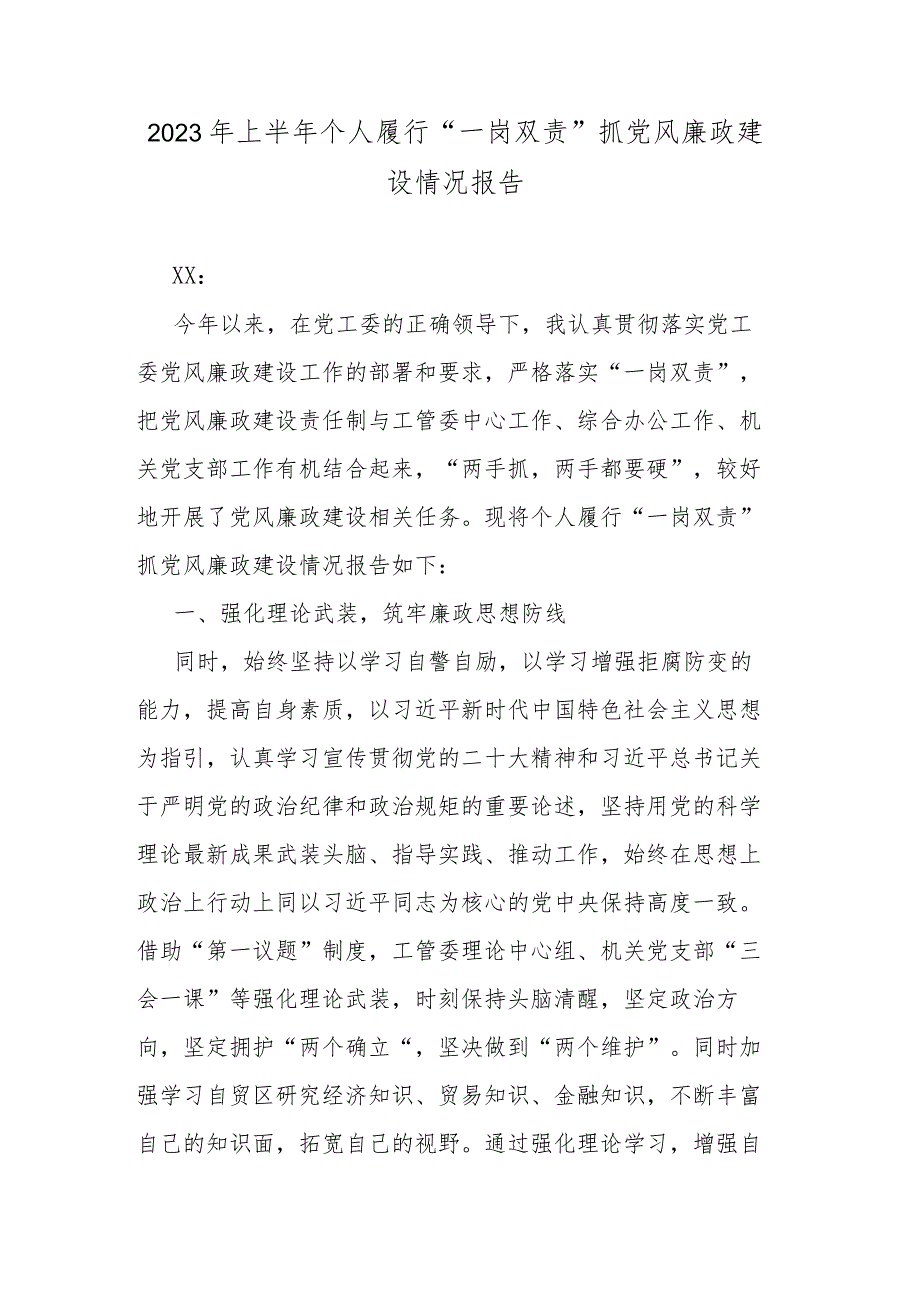 2023年上半年个人履行“一岗双责”抓党风廉政建
设情况报告
XX：
今年以来，在党工委的正确领导下，我认真贯彻落实党工
委党风廉政建设工作的部署和要求，严格落实“一岗双责”，
把党风廉政建设责任制与工管委中心工作、综合办公工作、机
关党支部工作有机结合起来，“两手抓，两手都要硬”，较好
地开展了党风廉政建设相关任务。现将个人履行“一岗双责”
抓党风廉政建设情况报告如下：
一、强化理论武装，筑牢廉政思想防线
同时，始终坚持以学习自警自励，以学习增强拒腐防变的
能力，提高自身素质，以习近平新时代中国特色社会主义思想
为指引，认真学习宣传贯彻党的二十大精神和习近平总书记关
于严明党的政治纪律和政治规矩的重要论述，坚持用党的科学
理论最新成果武装头脑、指导实践、推动工作，始终在思想上
政治上行动上同以习近平同志为核心的党中央保持高度一致。
借助“第一议题”制度，工管委理论中心组、机关党支部“三
会一课”等强化理论武装，时刻保持头脑清醒，坚定政治方
向，坚定拥护“两个确立“，坚决做到“两个维护”。同时加
强学习自贸区研究经济知识、贸易知识、金融知识，不断丰富
自己的知识面，拓宽自己的视野。通过强化理论学习，增强自